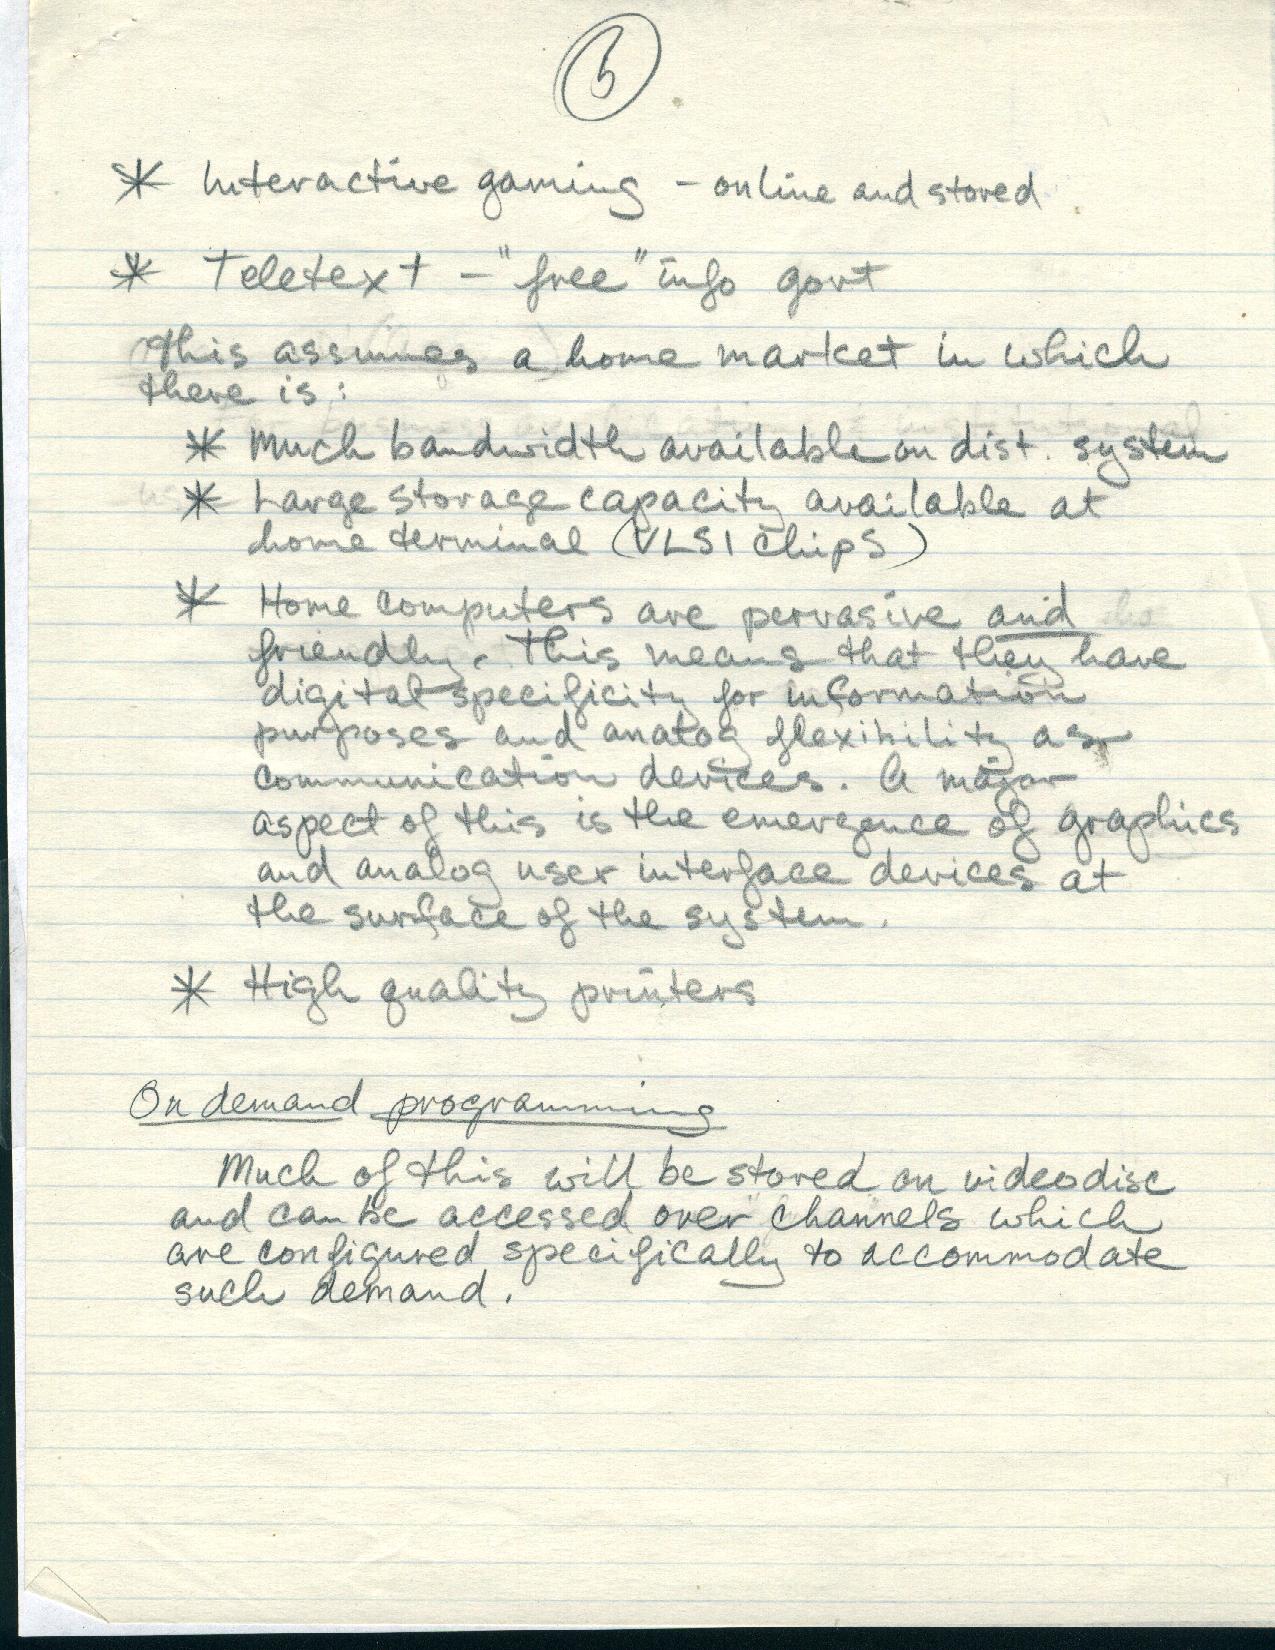 6
* Interactive gaming - online and stored
* Teletext - "free" info govt
This assumes a home market in which
there is:
* Much bandwidth available on dist. system
* Large storage capacity available at
home terminal (VLSI chips)
* Home computers are pervasive and
friendly. This means that they have
digital specificity for information
purposes and analog flexibility as
communication devices. A major
aspect of this is the emergence of graphics
and analog user interface devices at
the surface of the system.
* High quality printers
On demand programming
Much of this will be stored on videodisc
and can be accessed over channels which
are configured specifically to accommodate
such demand.